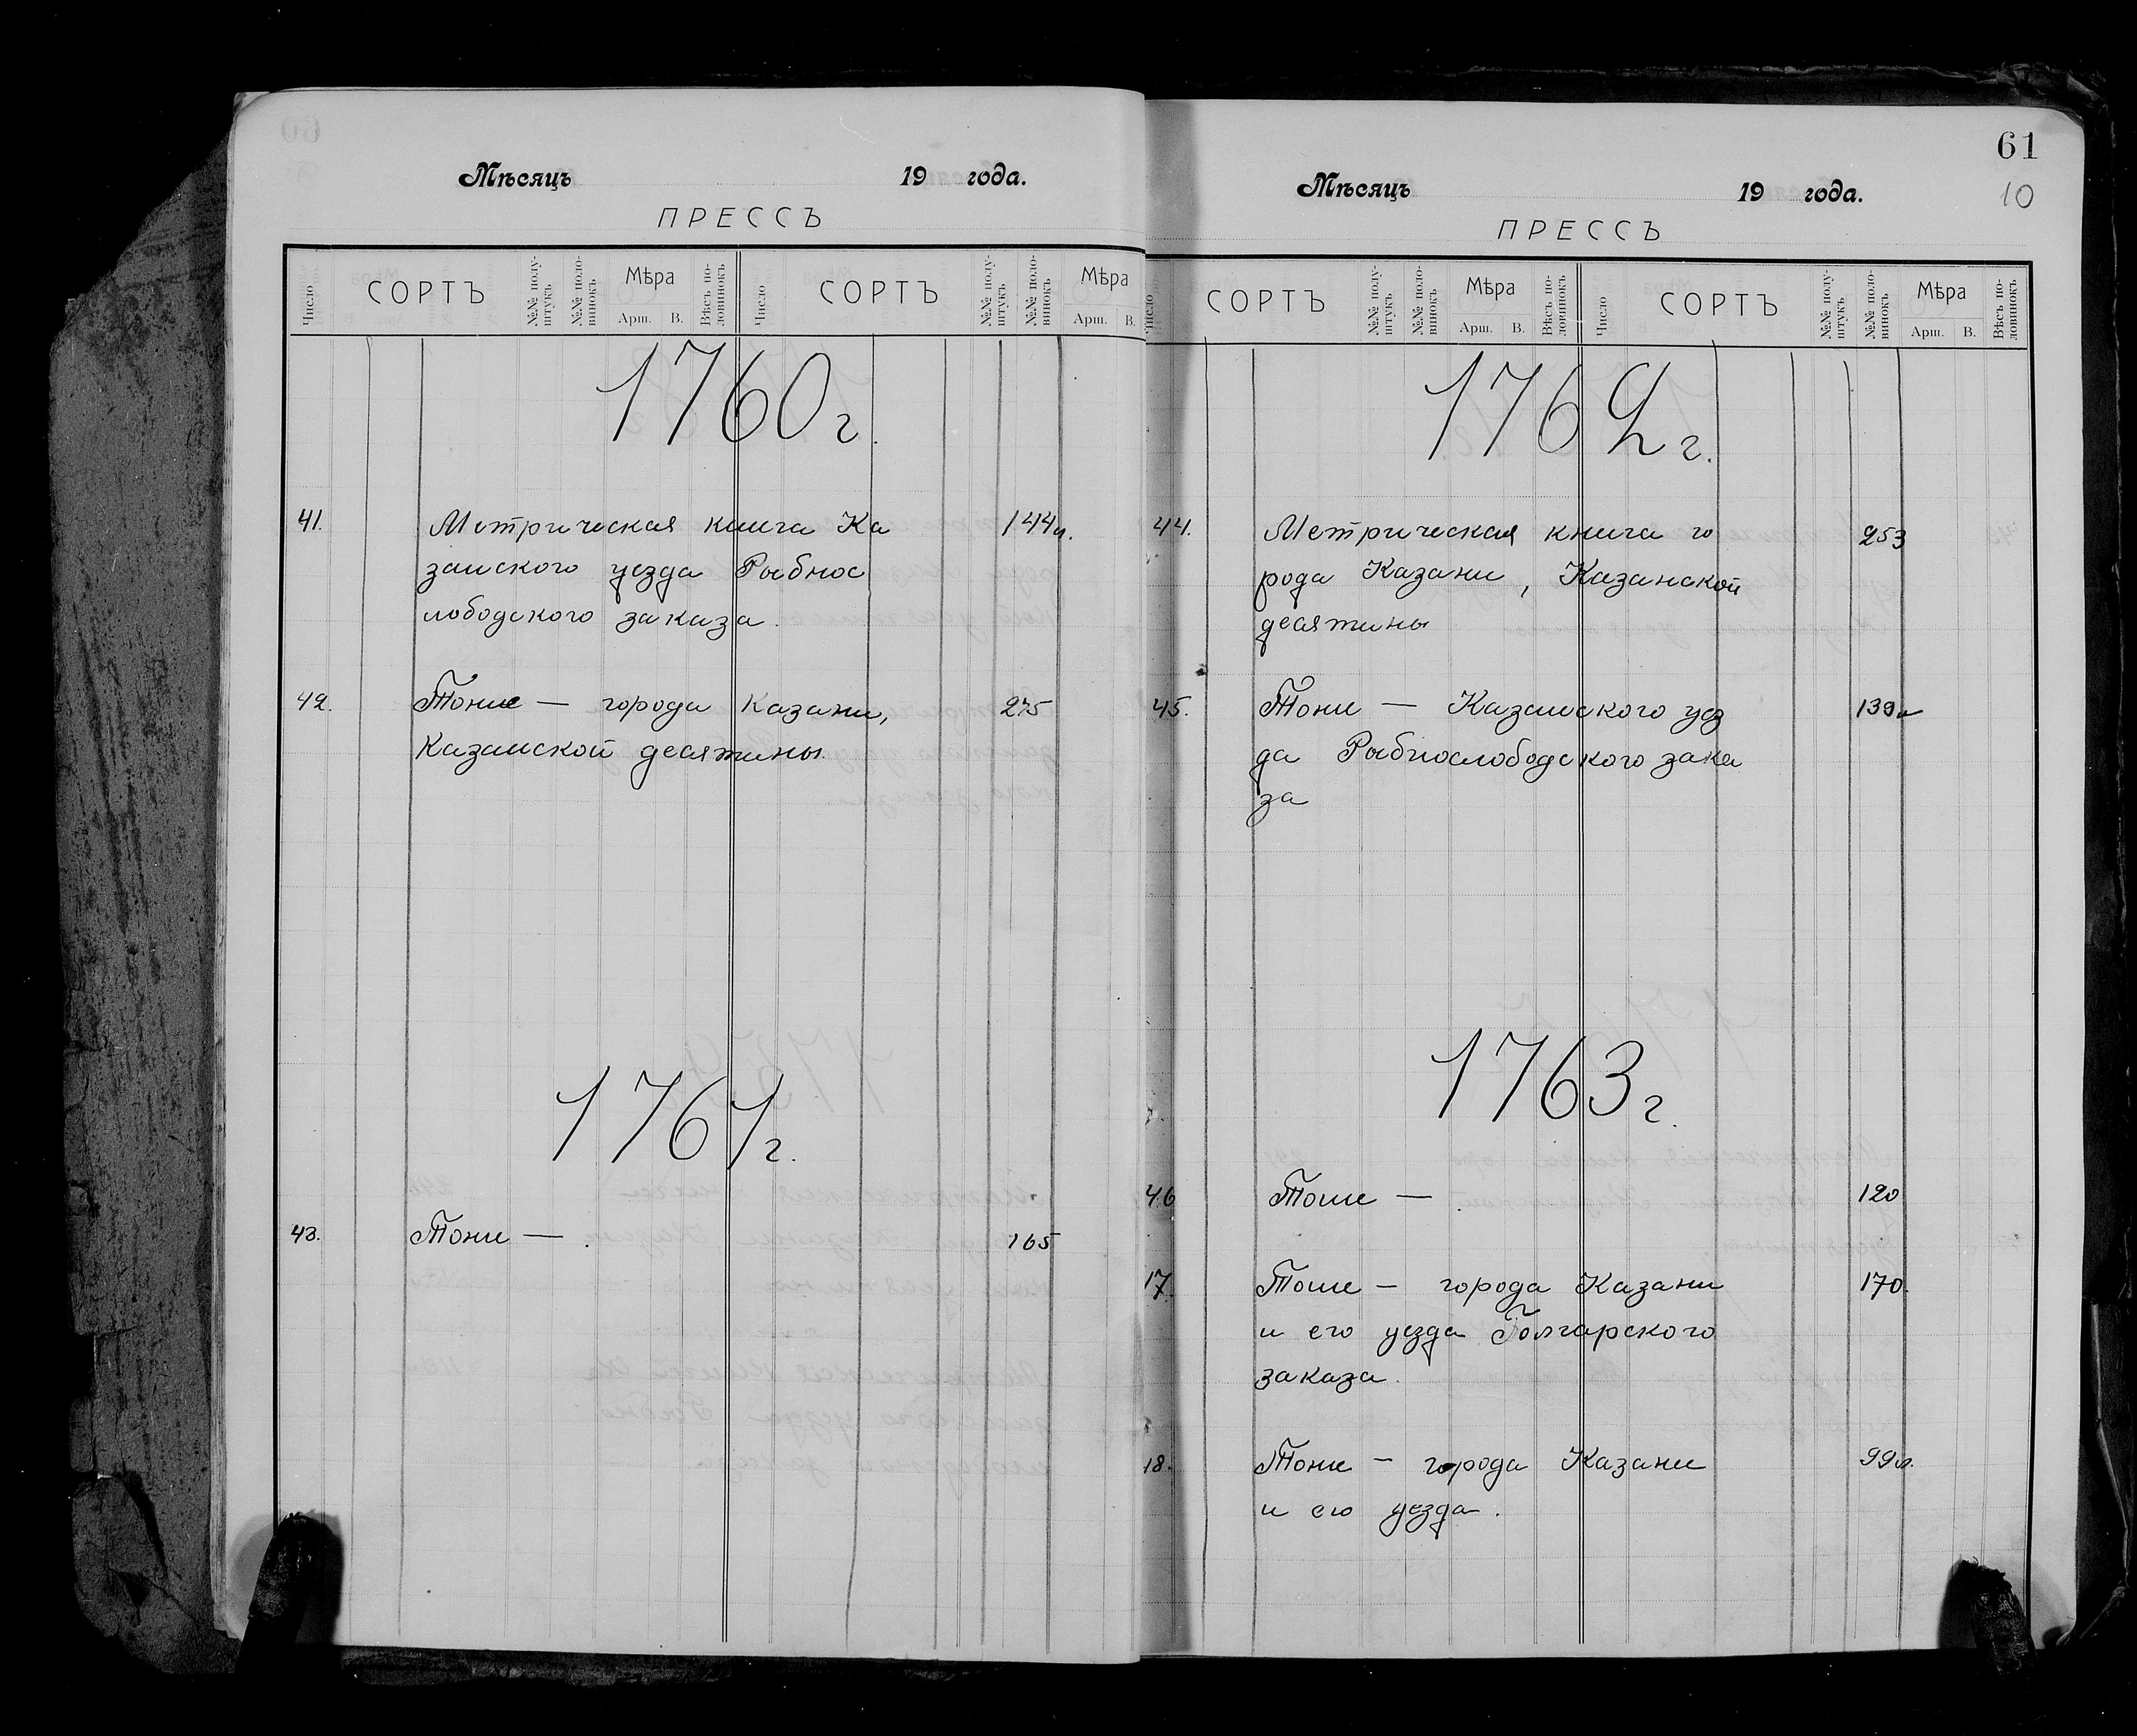 Мѣсяцъ 19 года.
ПРЕССЪ
Число СОРТЪ №№ полуштукъ №№ половинокъ Мѣра Арш. В. Вѣсъ половинокъ Число СОРТЪ №№ полуштукъ №№ половинокъ Мѣра Арш. В.
1760 г.
41. Метрическая книга Ка 144 л.
занского уезда Рыбнос
лободского заказа.
42. Тоже — города Казани, 275
Казанской десятины.
1761 г.
43. Тоже — . 165
61
10
Мѣсяцъ 19 года.
ПРЕССЪ
Число СОРТЪ №№ полуштукъ №№ половинокъ Мѣра Арш. В. Вѣсъ половинокъ Число СОРТЪ №№ полуштукъ №№ половинокъ Мѣра Арш. В. Вѣсъ половинокъ
1762 г.
44. Метрическая книга го 253
рода Казани, Казанской
десятины
45. Тоже — Казанского уез 139 л
да Рыбнослободского зака
за
1763 г.
46 Тоже — . 120
17. Тоже — города Казани 170.
и его уезда Болгарского
заказа.
18. Тоже — города Казани 99 л.
и его уезда.